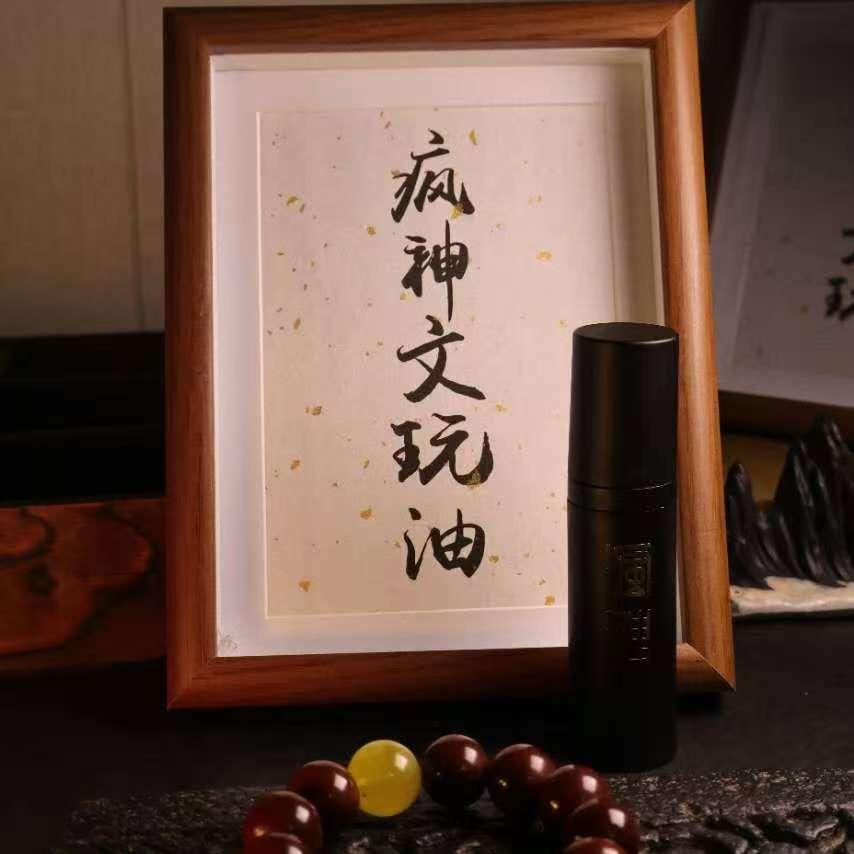 疯神文玩油